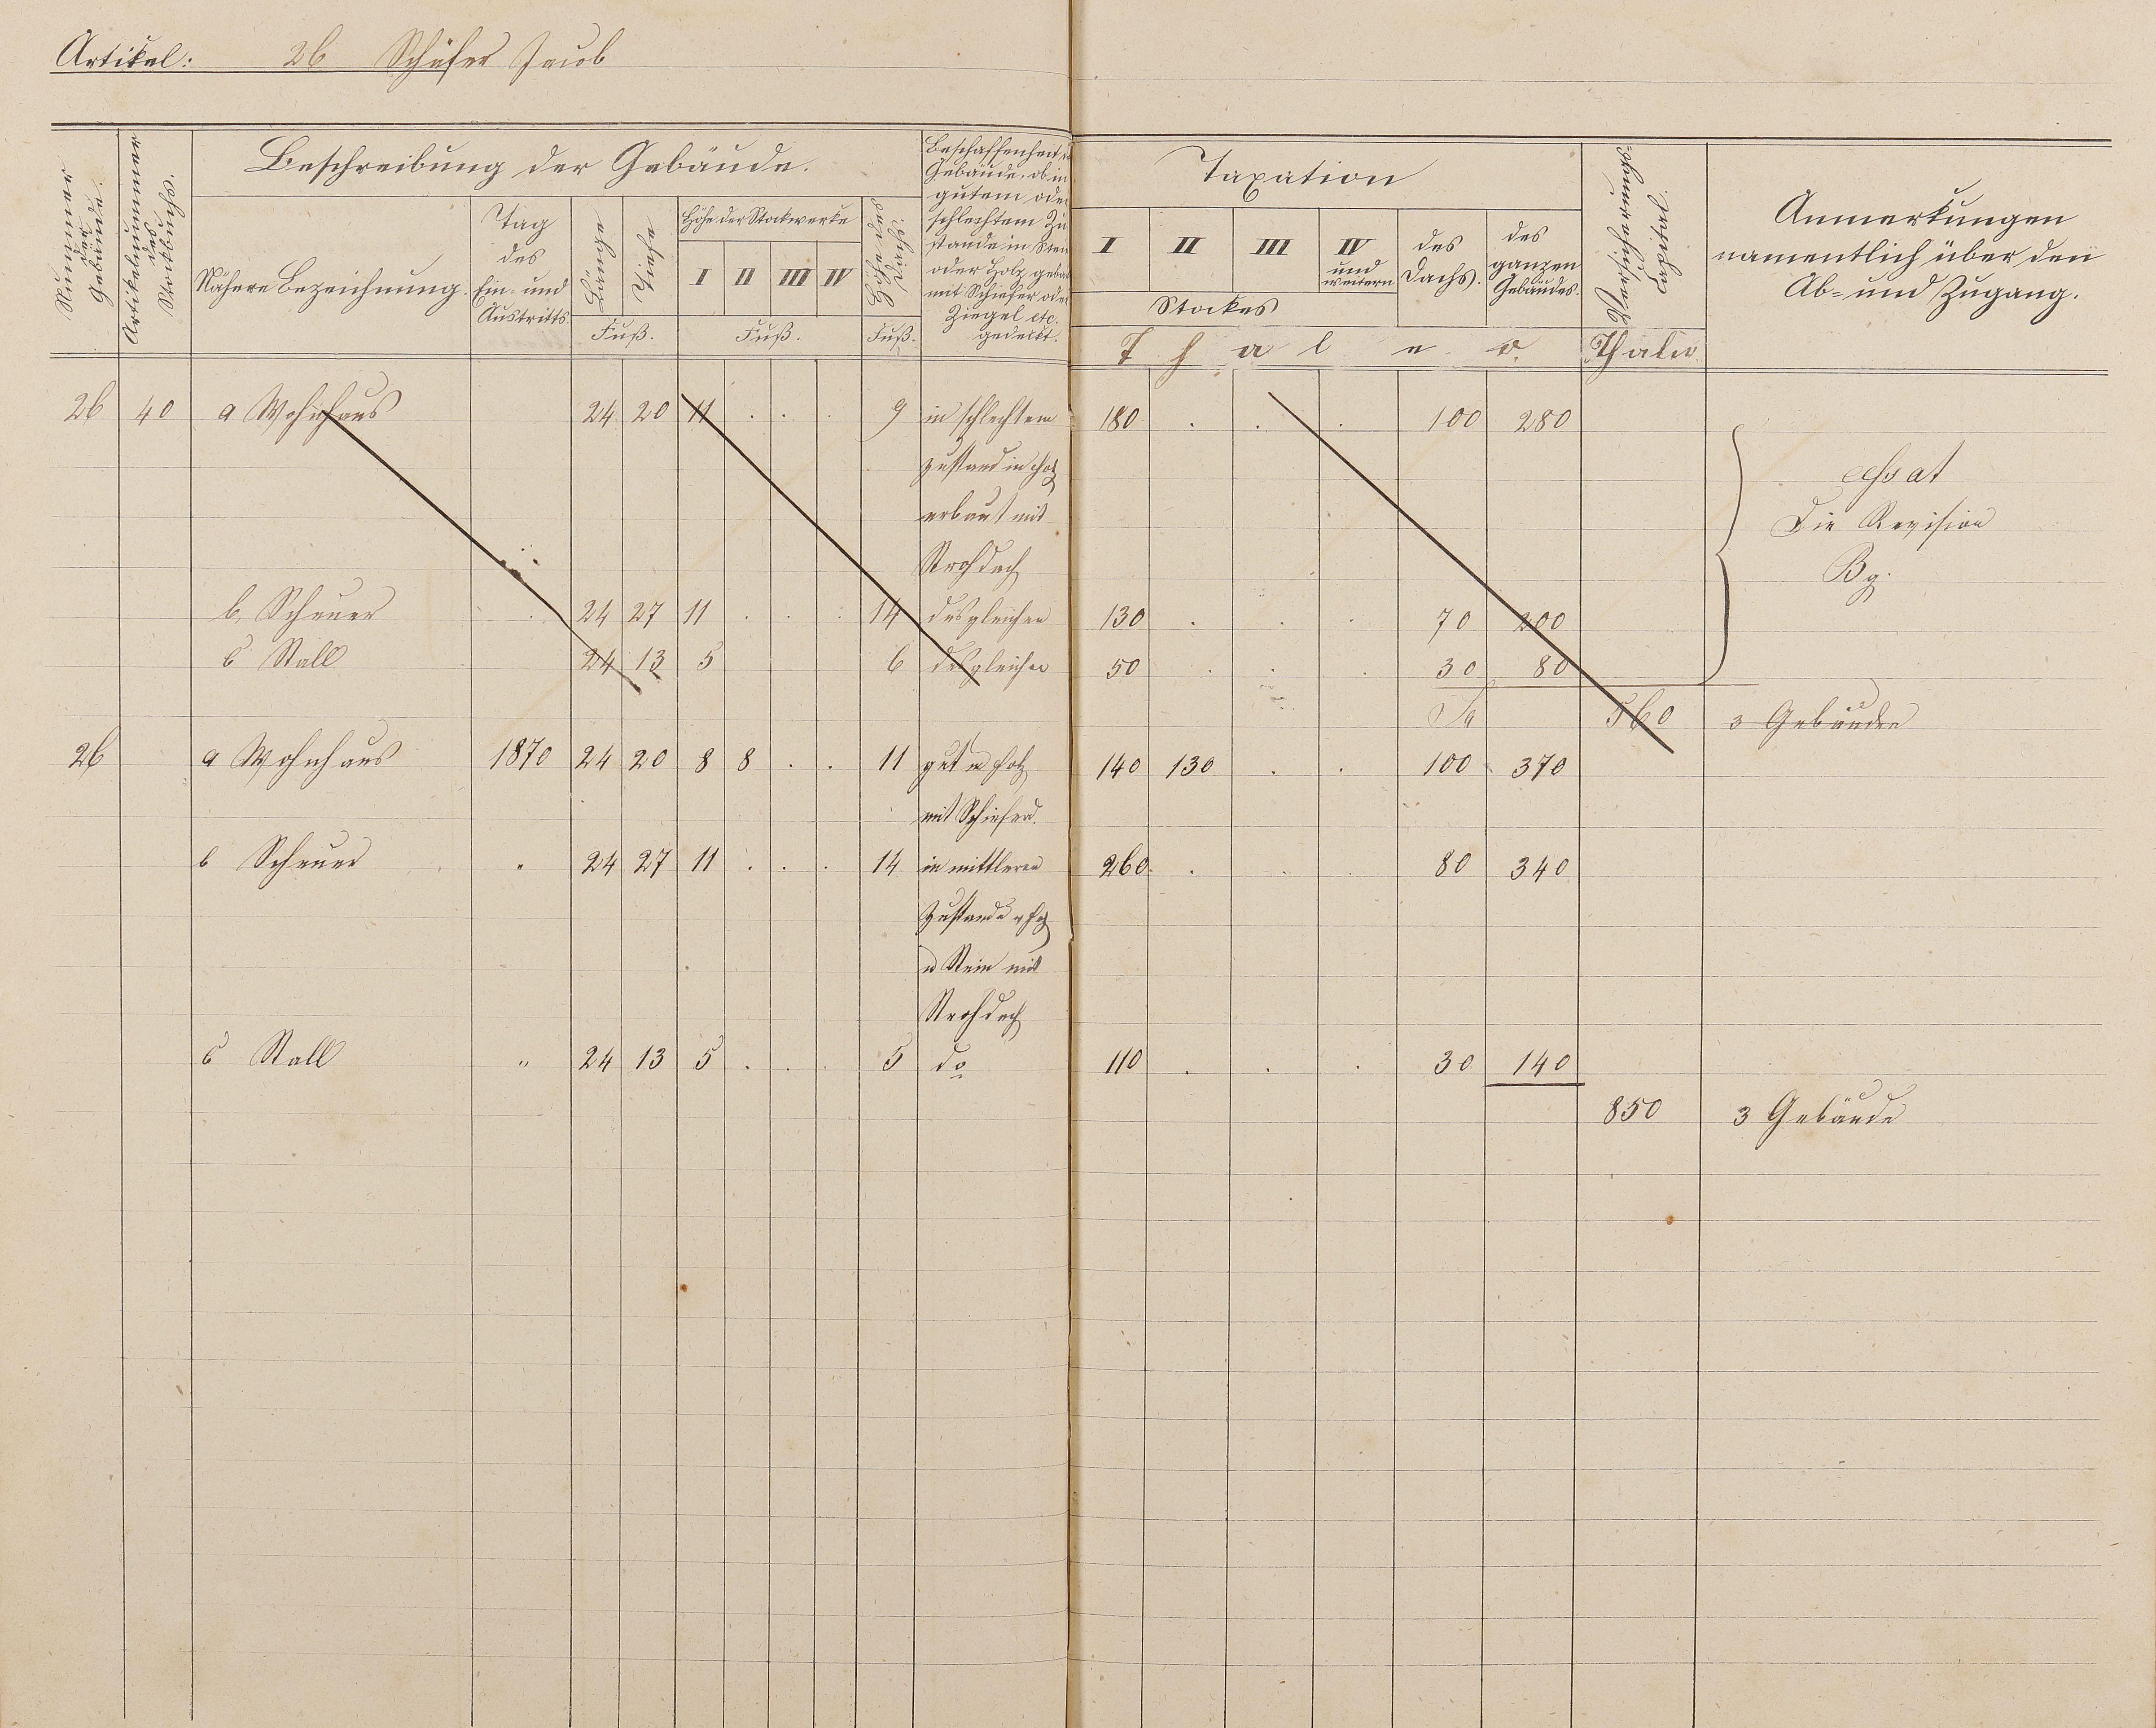 Artikel: 26 Schäfer Jacob
Nummer der Gebäude.
Artikelnummer des Stockbuchs.
Beschreibung der Gebäude.
Nähere Bezeichnung.
Tag des Ein- und Austritts.
Länge
Tiefe
Fuß.
Höhe der Stockwerke
I II III IV
Fuß.
Fuß.
Beschaffenheit
Gebäude, ob in
gutem oder
schlechtem Zu
stande in Stein
oder Holz gebaut
mit Schiefer oder
Ziegel etc.
gedeckt.
Taxation
I II III IV und weitern
Stockes
des Dachs.
des ganzen Gebäudes.
Thaler
Versicherungs-
Thaler
Anmerkungen
namentlich über den
Ab- und Zugang.
26 40 a Wohnhaus 24 20 11 . . . 9 in schlechtem 180 . . . 100 280
zustand in Holz cessat
erbaut mit Die Revision
Strohdach Bg.
b. Scheuer 24 27 11 . . . 14 desgleichen 130 . . . 70 200
c Stall 24 13 5 6 desgleichen 50 . . . 30 80
560 3 Gebäuden
26 a Wohnhaus 1870 24 20 8 8 . . 11 gut in Holz 140 130 . . 100 370
mit Schieferd.
b Scheuer " 24 27 11 . . . 14 in mittleren 260 . . . 80 340
Zustande
u Stein mit
Strohdach
c Stall " 24 13 5 . . . 5 do 110 . . . 30 140
850 3 Gebäude